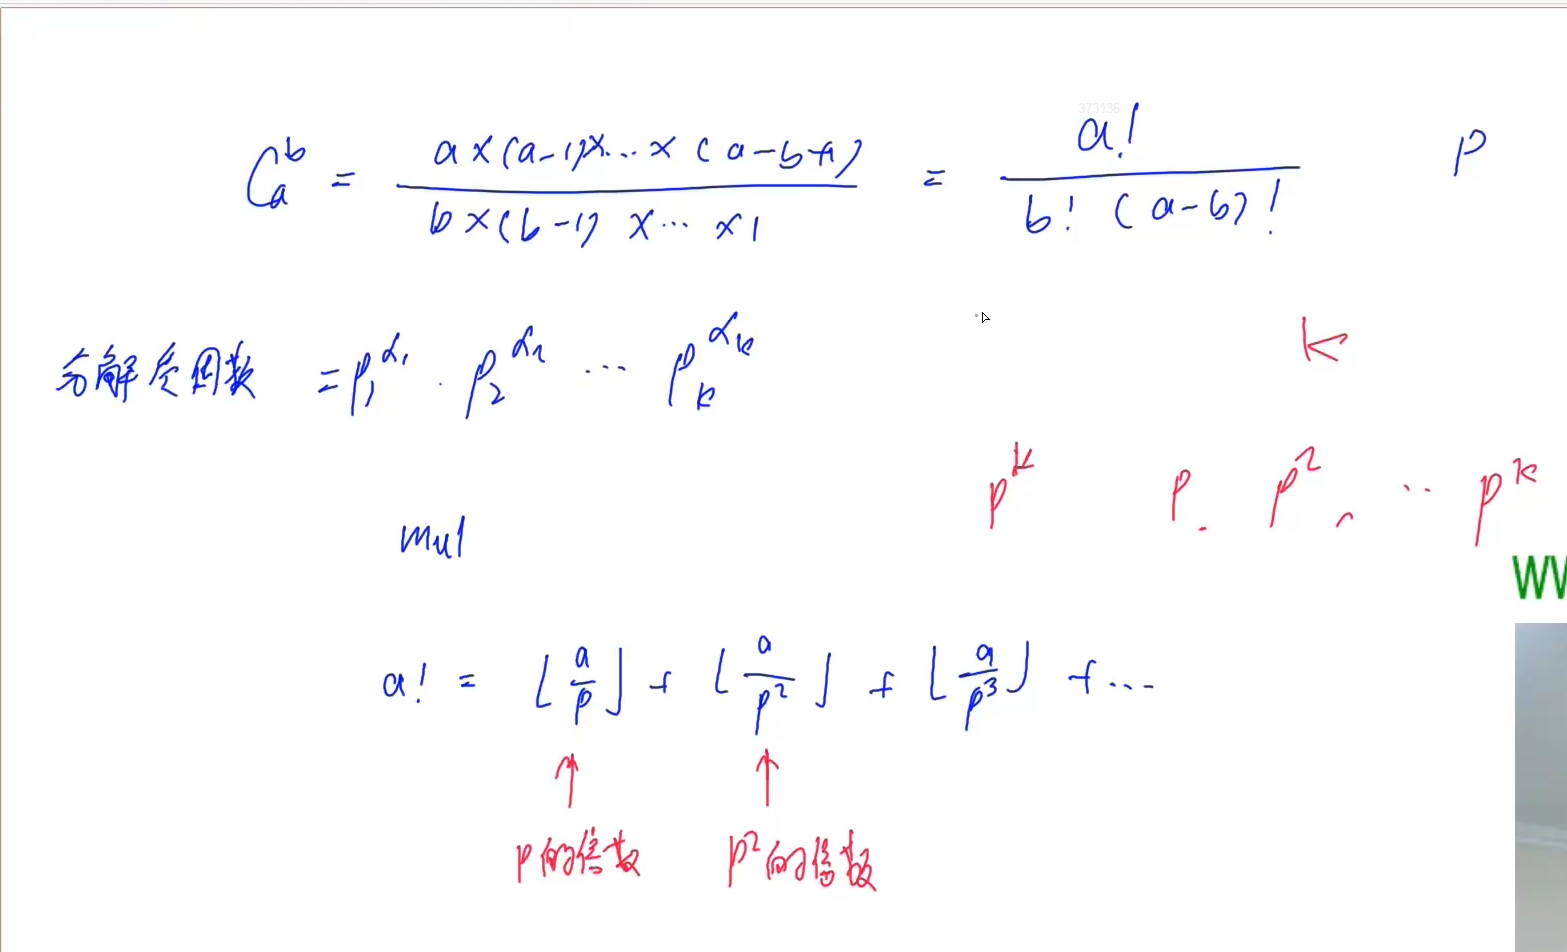 373136
C_a^b = a×(a-1)×...×(a-b+1) / b×(b-1)×...×1 = a! / b!(a-b)! P
分解质因数 = P₁^α₁ · P₂^α₂ ... P_k^α_k
k
p^k p. p², ·· p^k
mul
W
a! = ⌊a/p⌋ + ⌊a/p²⌋ + ⌊a/p³⌋ + ...
p的倍数 p²的倍数